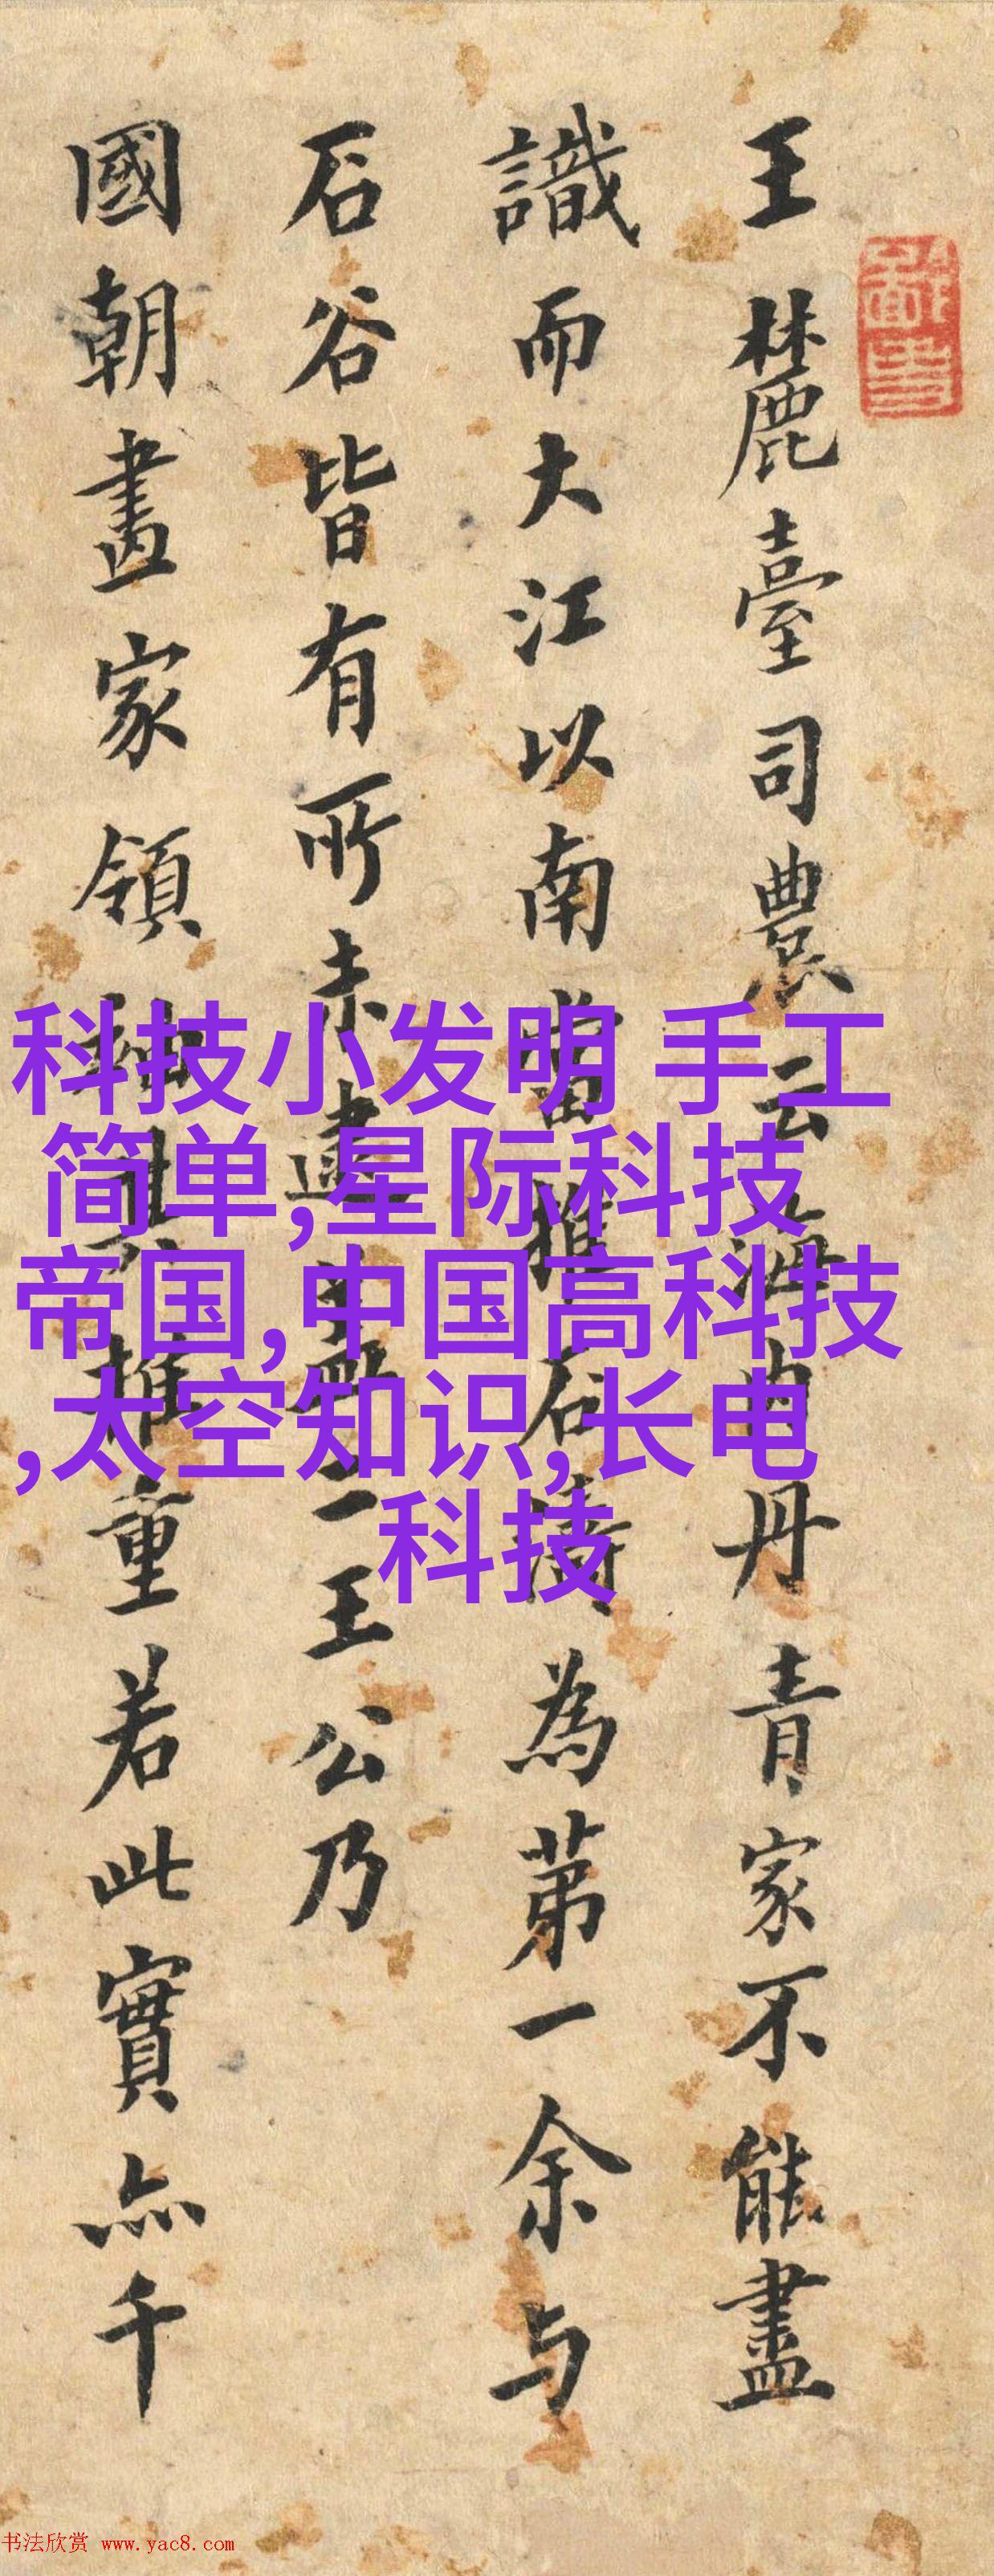 王麓臺司農云海內丹青家不能盡
識而大江以南當推石濤為第一余与
石谷皆有所未逮二王公乃
國朝畫家領袖推重若此實亦千
科技小发明 手工
简单,星际科技
帝国,中国高科技
,太空知识,长电
科技
书法欣赏 www.yac8.com